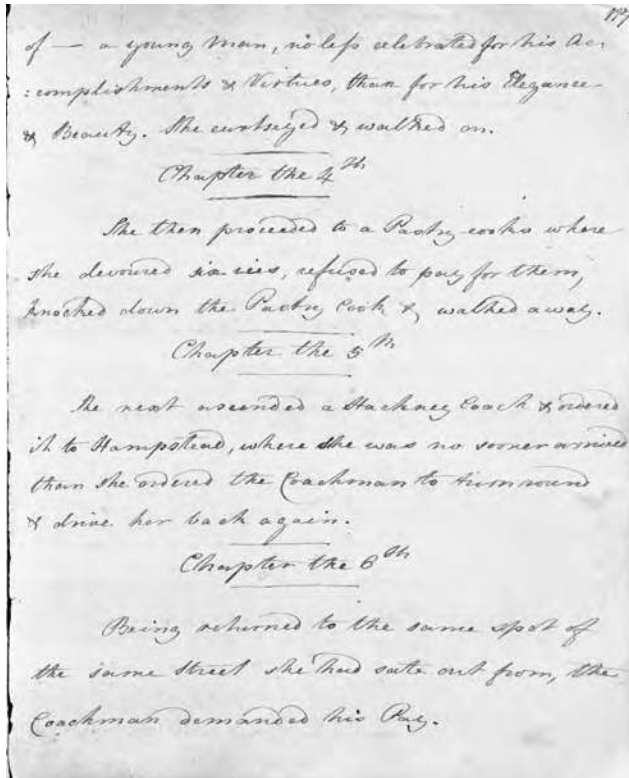 117
of — a young Man, no less celebrated for his Ac,
:complishments & Virtues, than for his Elegance
& Beauty. She curtseyed & walked on.
Chapter the 4th
She then proceeded to a Pastry-cooks where
she devoured six ices, refused to pay for them,
knocked down the Pastry Cook & walked away.
Chapter the 5th
She next ascended a Hackney Coach & ordered
it to Hampstead, where she was no sooner arrived
than she ordered the Coachman to turn round
& drive her back again.
Chapter the 6th
Being returned to the same spot of
the same Street she had sate out from, the
Coachman demanded his Pay.